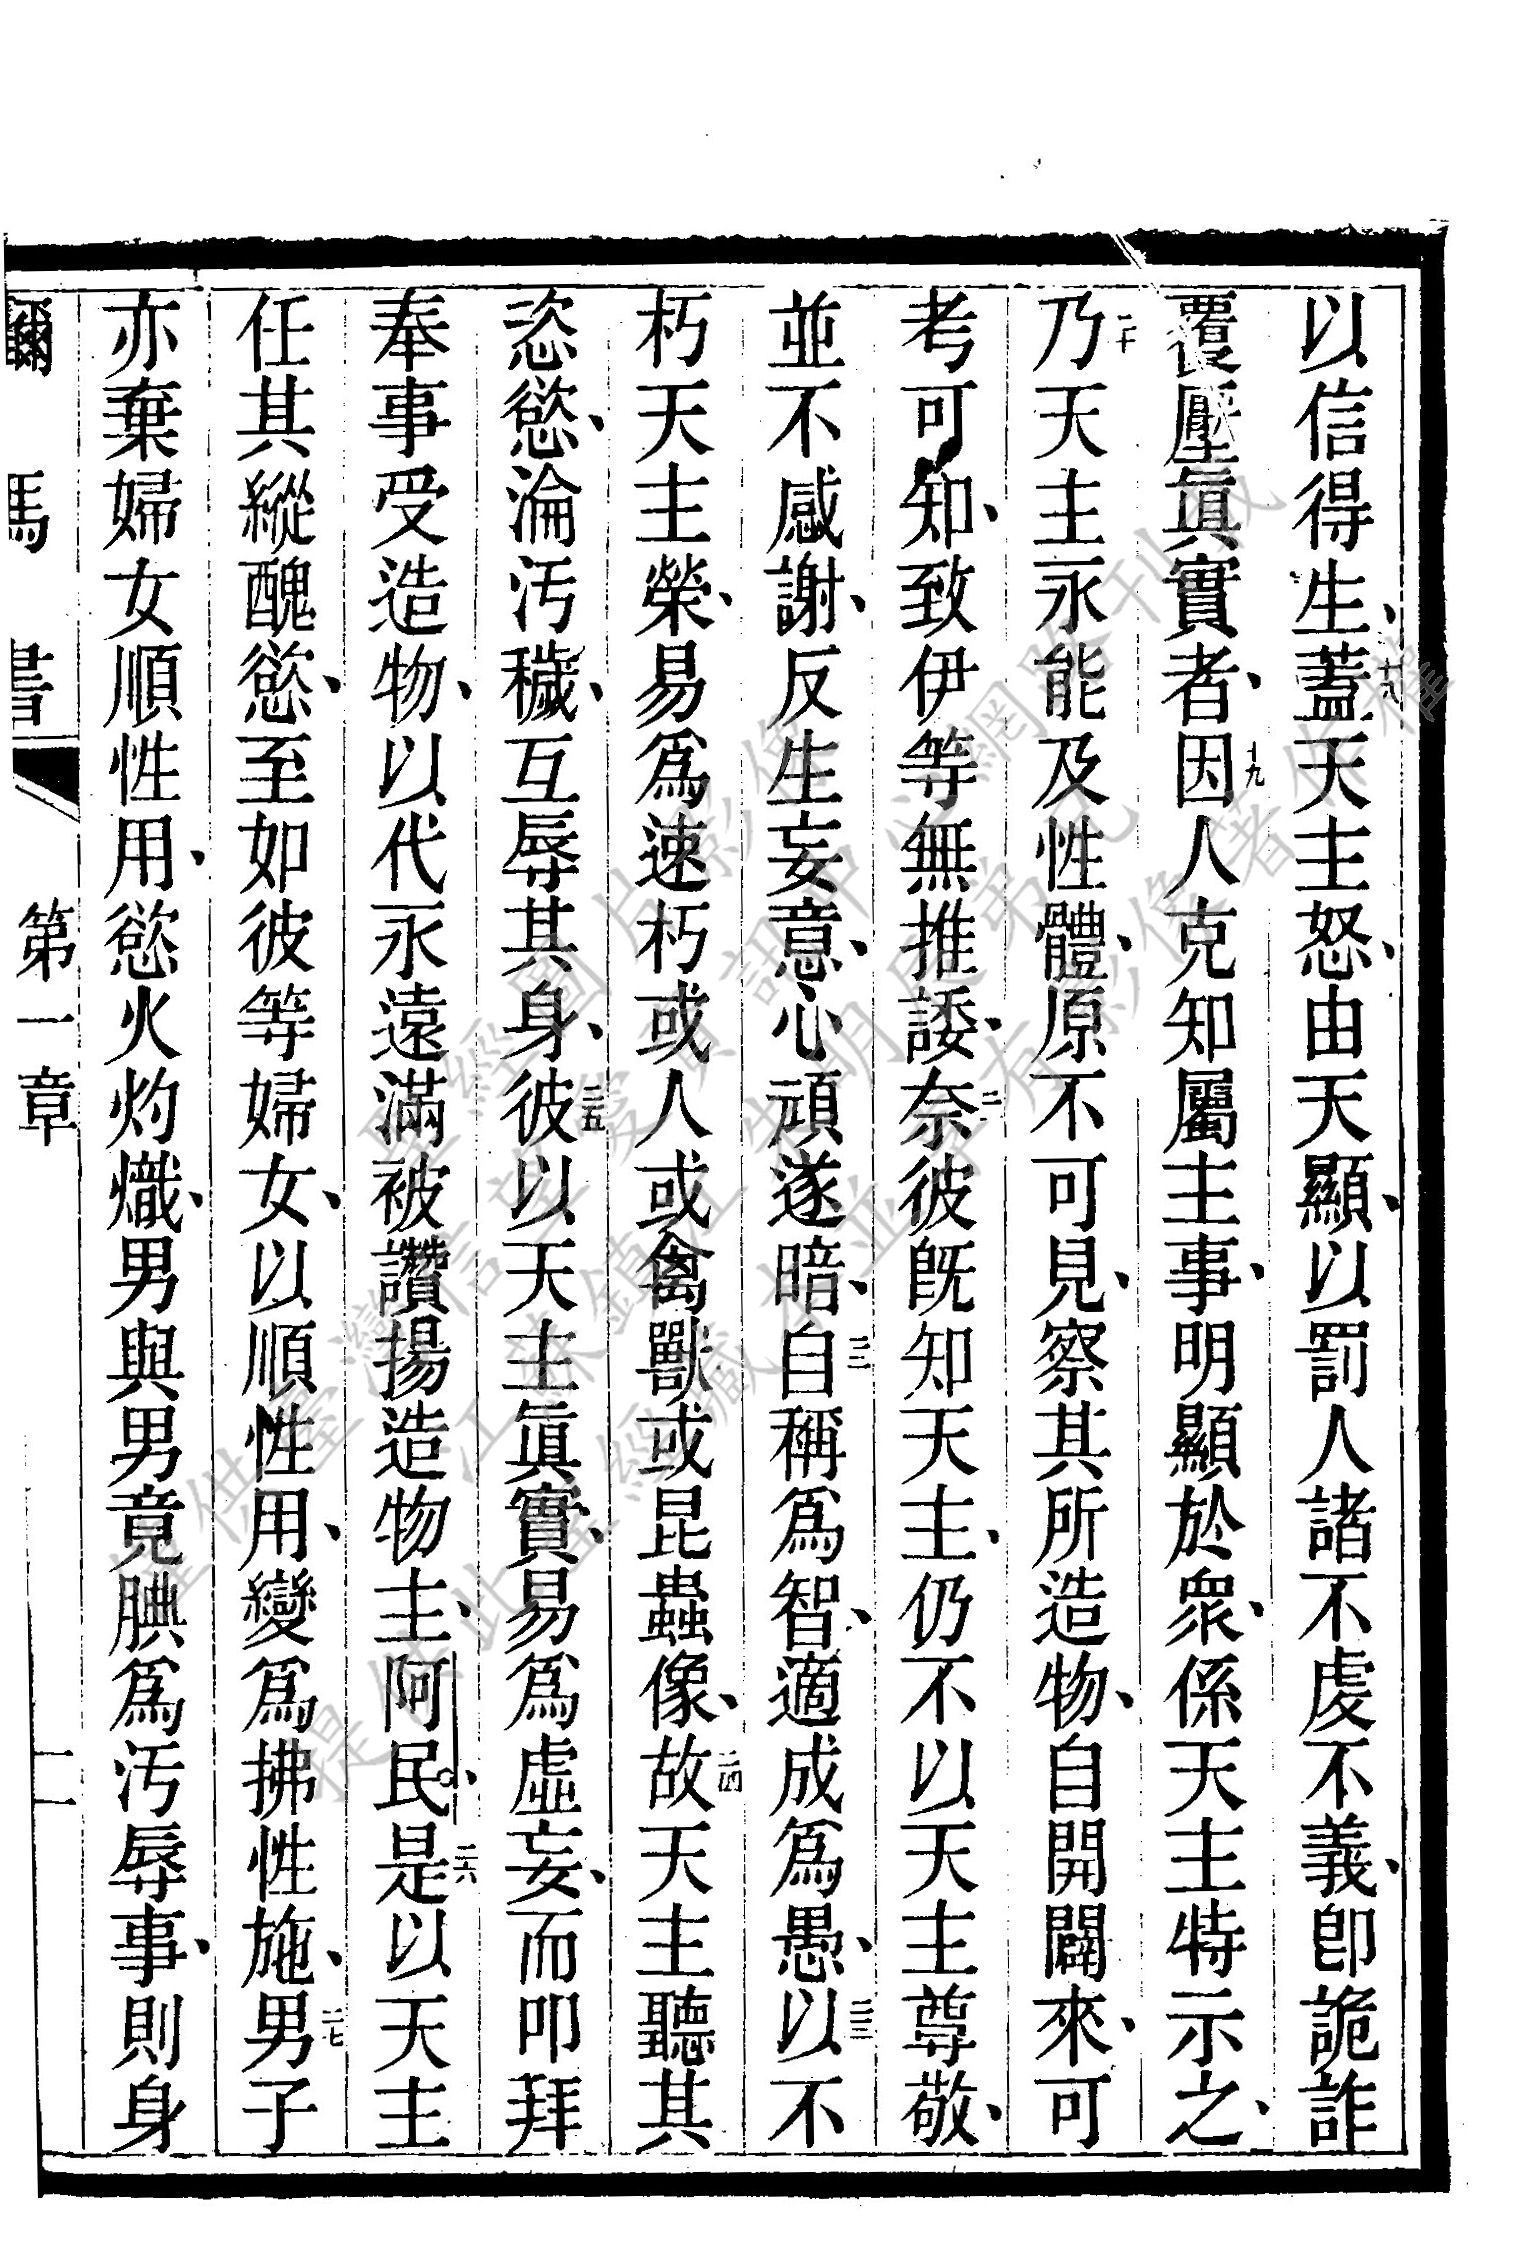 以信得生、十八蓋天主怒、由天顯、以罰人諸不虔不義、卽詭詐
覆壓眞實者、十九因人克知屬主事、明顯於衆、係天主特示之、
二十乃天主永能及性體、原不可見、察其所造物、自開闢來、可
考可知、致伊等無推諉、二一奈彼旣知天主、仍不以天主尊敬、
並不感謝、反生妄意、心頑遂暗、二二自稱爲智、適成爲愚、二三以不
朽天主榮、易爲速朽或人或禽獸或昆蟲像、二四故天主聽其
恣慾、淪汚穢、互辱其身、二五彼以天主眞實、易爲虛妄、而叩拜
奉事受造物、以代永遠滿被讚揚造物主、阿民、二六是以天主
任其縱醜慾、至如彼等婦女、以順性用、變爲拂性施、二七男子
亦棄婦女順性用、慾火灼熾、男與男竟腆爲汚辱事、則身
羅馬書 第一章 二